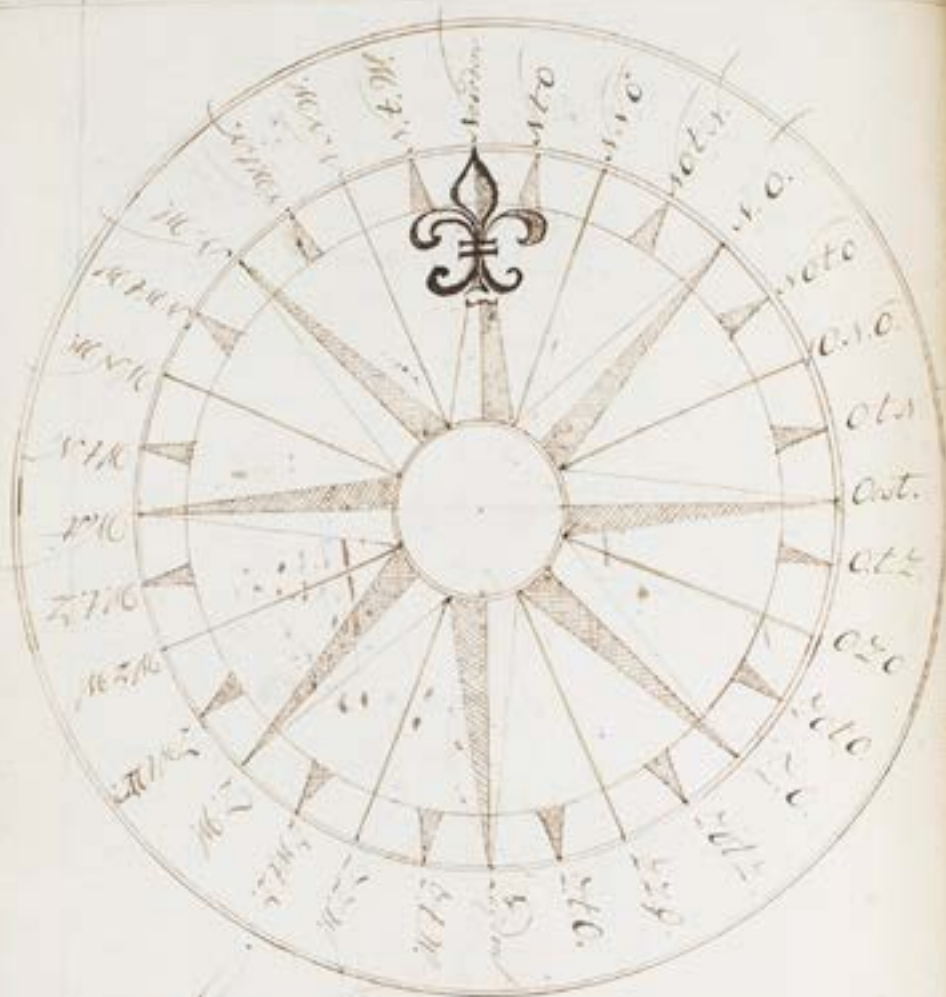 NtO
N.N.O
NOtN.
N.O.
NOtO
O.N.O.
OtN
Oost.
O.t.Z
OZO
ZOtO
Z.O.
ZOtZ
Z.Z.O.
ZtO.
ZtW.
Z.Z.W
ZWtZ
Z.W.
ZWtW
WZW
WtZ
Wst.
WtN
WNW
NWtW
N.W.
NWtN
N.N.W
NtW